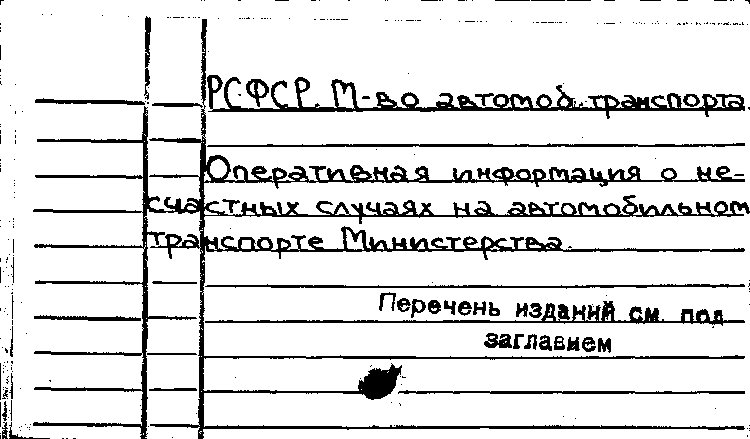 РСФСР. М-во автомоб. транспорта.
Оперативная информация о не-
счастных случаях на автомобильном
транспорте Министерства.
Перечень изданий см. под
заглавием